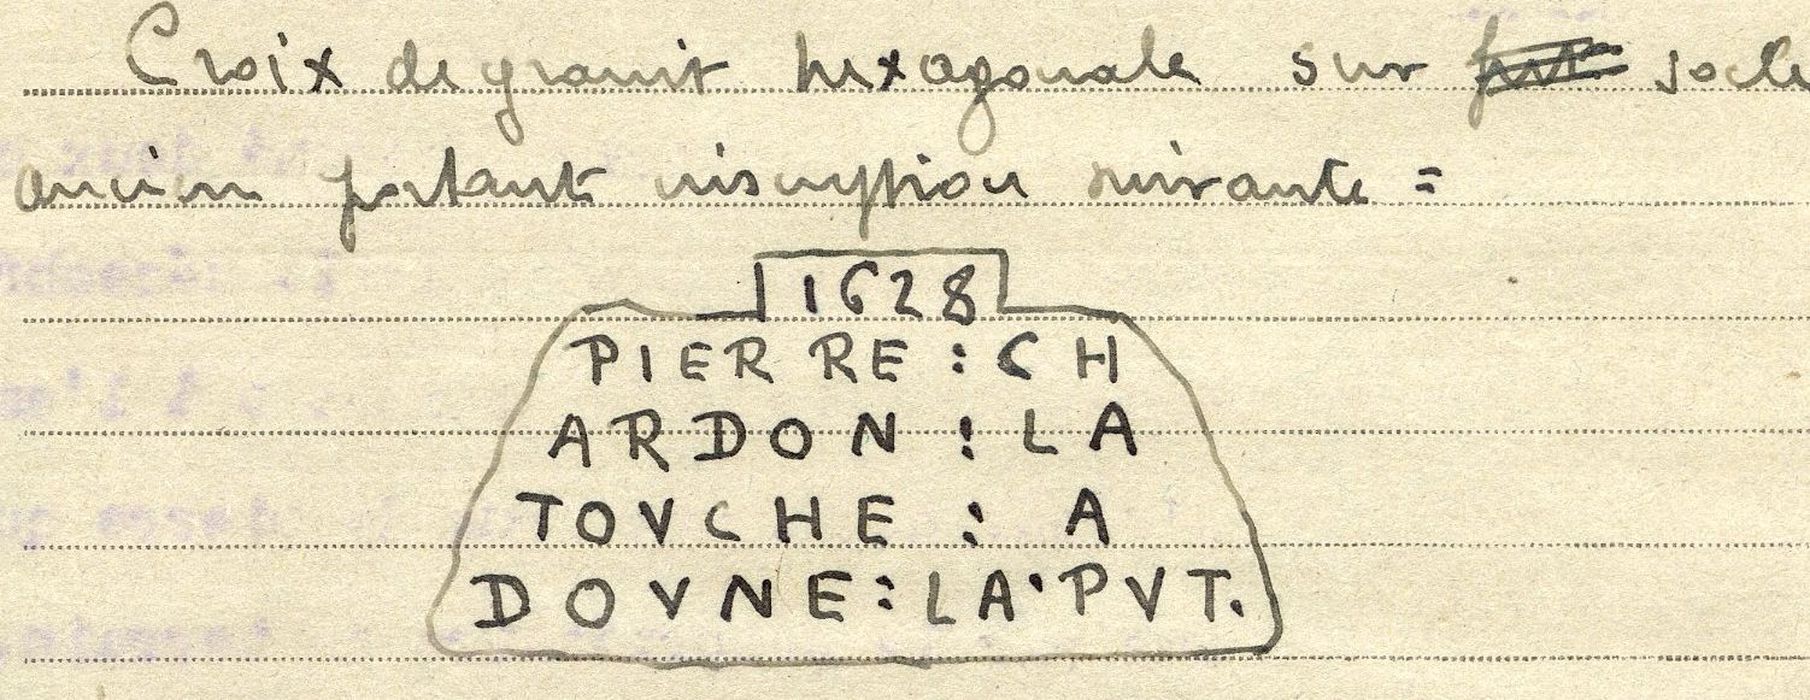 Croix de granit hexagonale sur socle
ancien portant inscription suivante =
1628
PIERRE : CH
ARDON : LA
TOVCHE : A
DOVNE : LA · PVT.